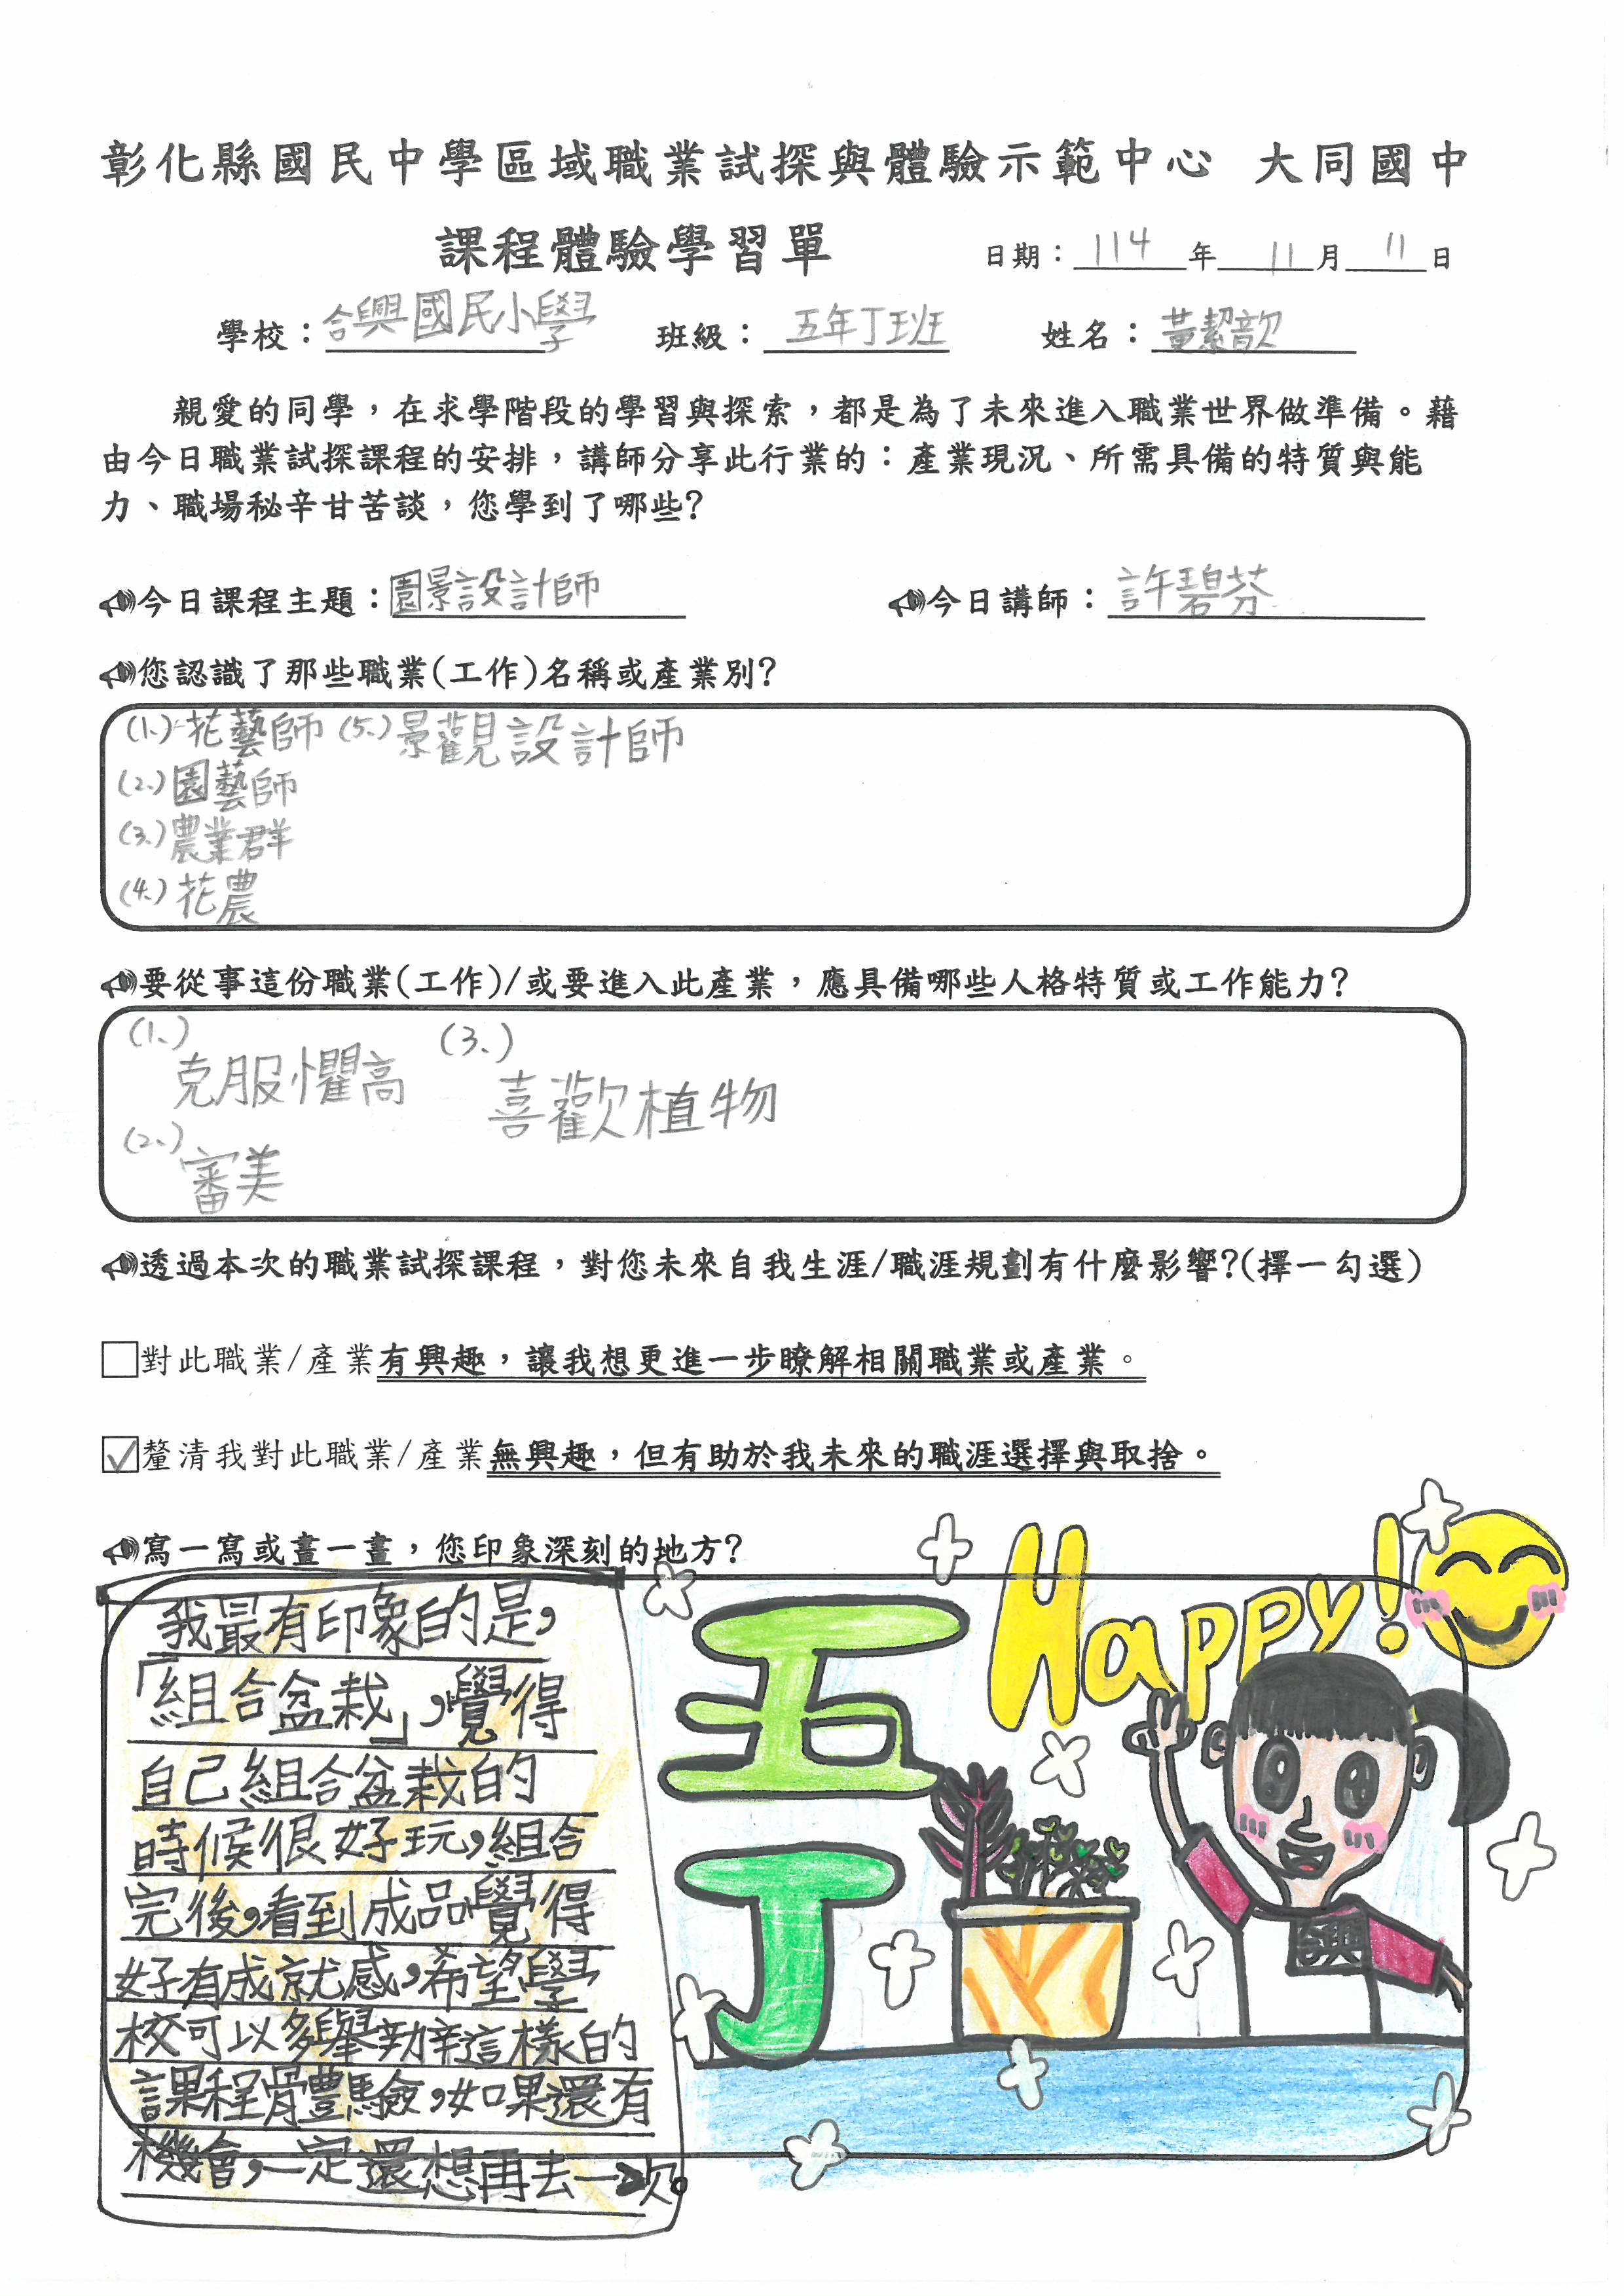 彰化縣國民中學區域職業試探與體驗示範中心 大同國中
課程體驗學習單 日期：114年11月11日
學校：合興國民小學 班級：五年丁班 姓名：黃潔歆
親愛的同學，在求學階段的學習與探索，都是為了未來進入職業世界做準備。藉
由今日職業試探課程的安排，講師分享此行業的：產業現況、所需具備的特質與能
力、職場秘辛甘苦談，您學到了哪些?
今日課程主題：園景設計師 今日講師：許碧芬
您認識了那些職業(工作)名稱或產業別?
(1.)花藝師 (5.)景觀設計師
(2.)園藝師
(3.)農業群
(4.)花農
要從事這份職業(工作)/或要進入此產業，應具備哪些人格特質或工作能力?
(1.) 克服懼高 (3.) 喜歡植物
(2.) 審美
透過本次的職業試探課程，對您未來自我生涯/職涯規劃有什麼影響?(擇一勾選)
□對此職業/產業有興趣，讓我想更進一步瞭解相關職業或產業。
☑釐清我對此職業/產業無興趣，但有助於我未來的職涯選擇與取捨。
寫一寫或畫一畫，您印象深刻的地方?
我最有印象的是，
「組合盆栽」，覺得
自己組合盆栽的
時候很好玩，組合
完後，看到成品覺得
好有成就感，希望學
校可以多舉辦這樣的
課程體驗，如果還有
機會，一定還想再去一次。
五丁
Happy!
合興